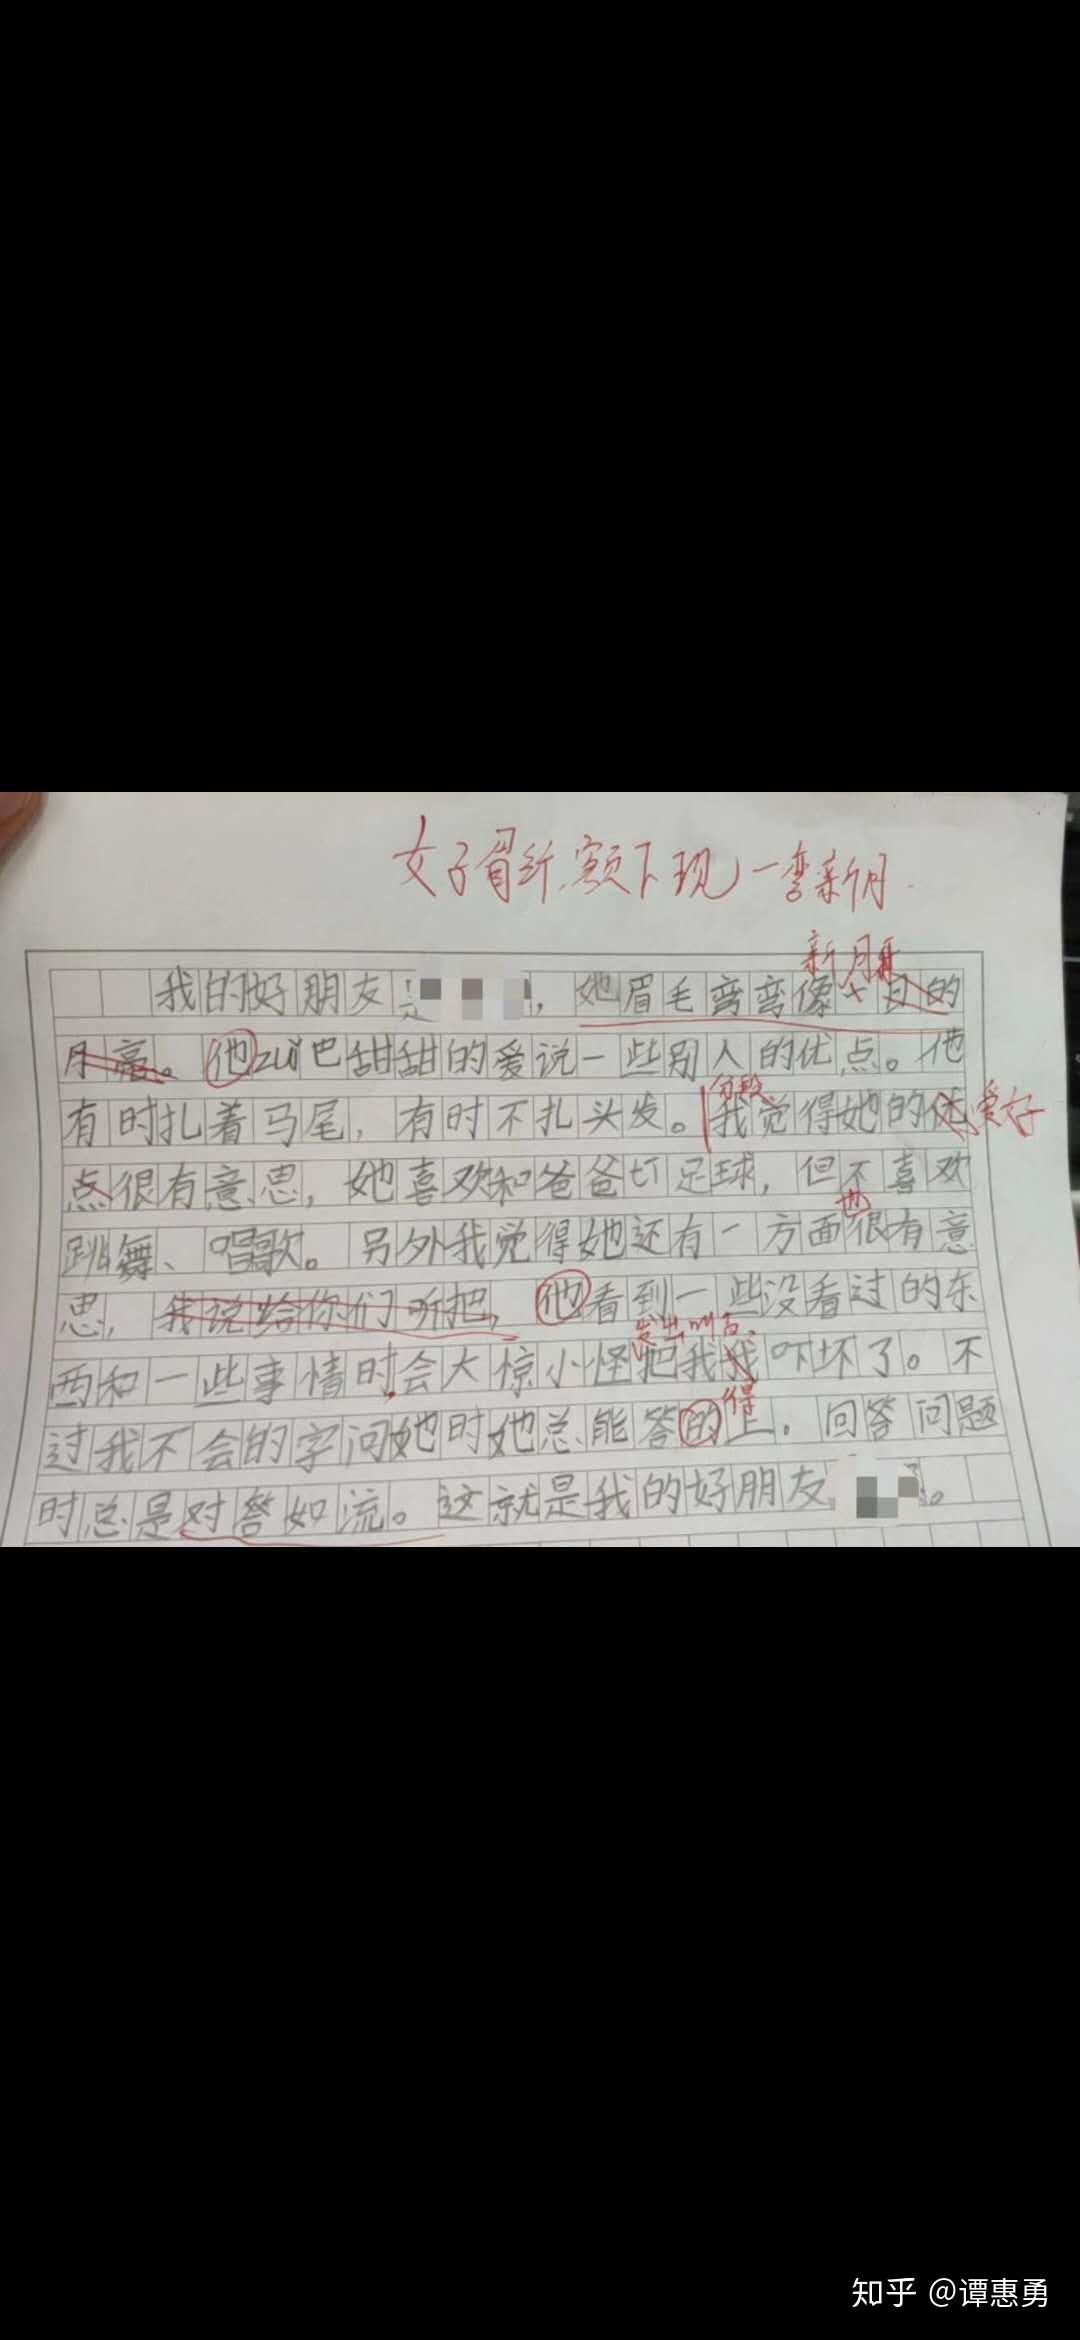 女子眉纤，额下现一弯新月．
新月
我的好朋友是，她眉毛弯弯像十月的
月亮。他zuǐ巴甜甜的爱说一些别人的优点。他
分段
有时扎着马尾，有时不扎头发。我觉得她的优爱好
点很有意思，她喜欢和爸爸打足球，但不喜欢
也
跳舞、唱歌。另外我觉得她还有一方面很有意
思，我说给你们听把，他看到一些没看过的东
发出叫声，
西和一些事情时会大惊小怪把我我吓坏了。不
得
过我不会的字问她时她总能答的上．回答问题
时总是对答如流。这就是我的好朋友。
知乎 @谭惠勇